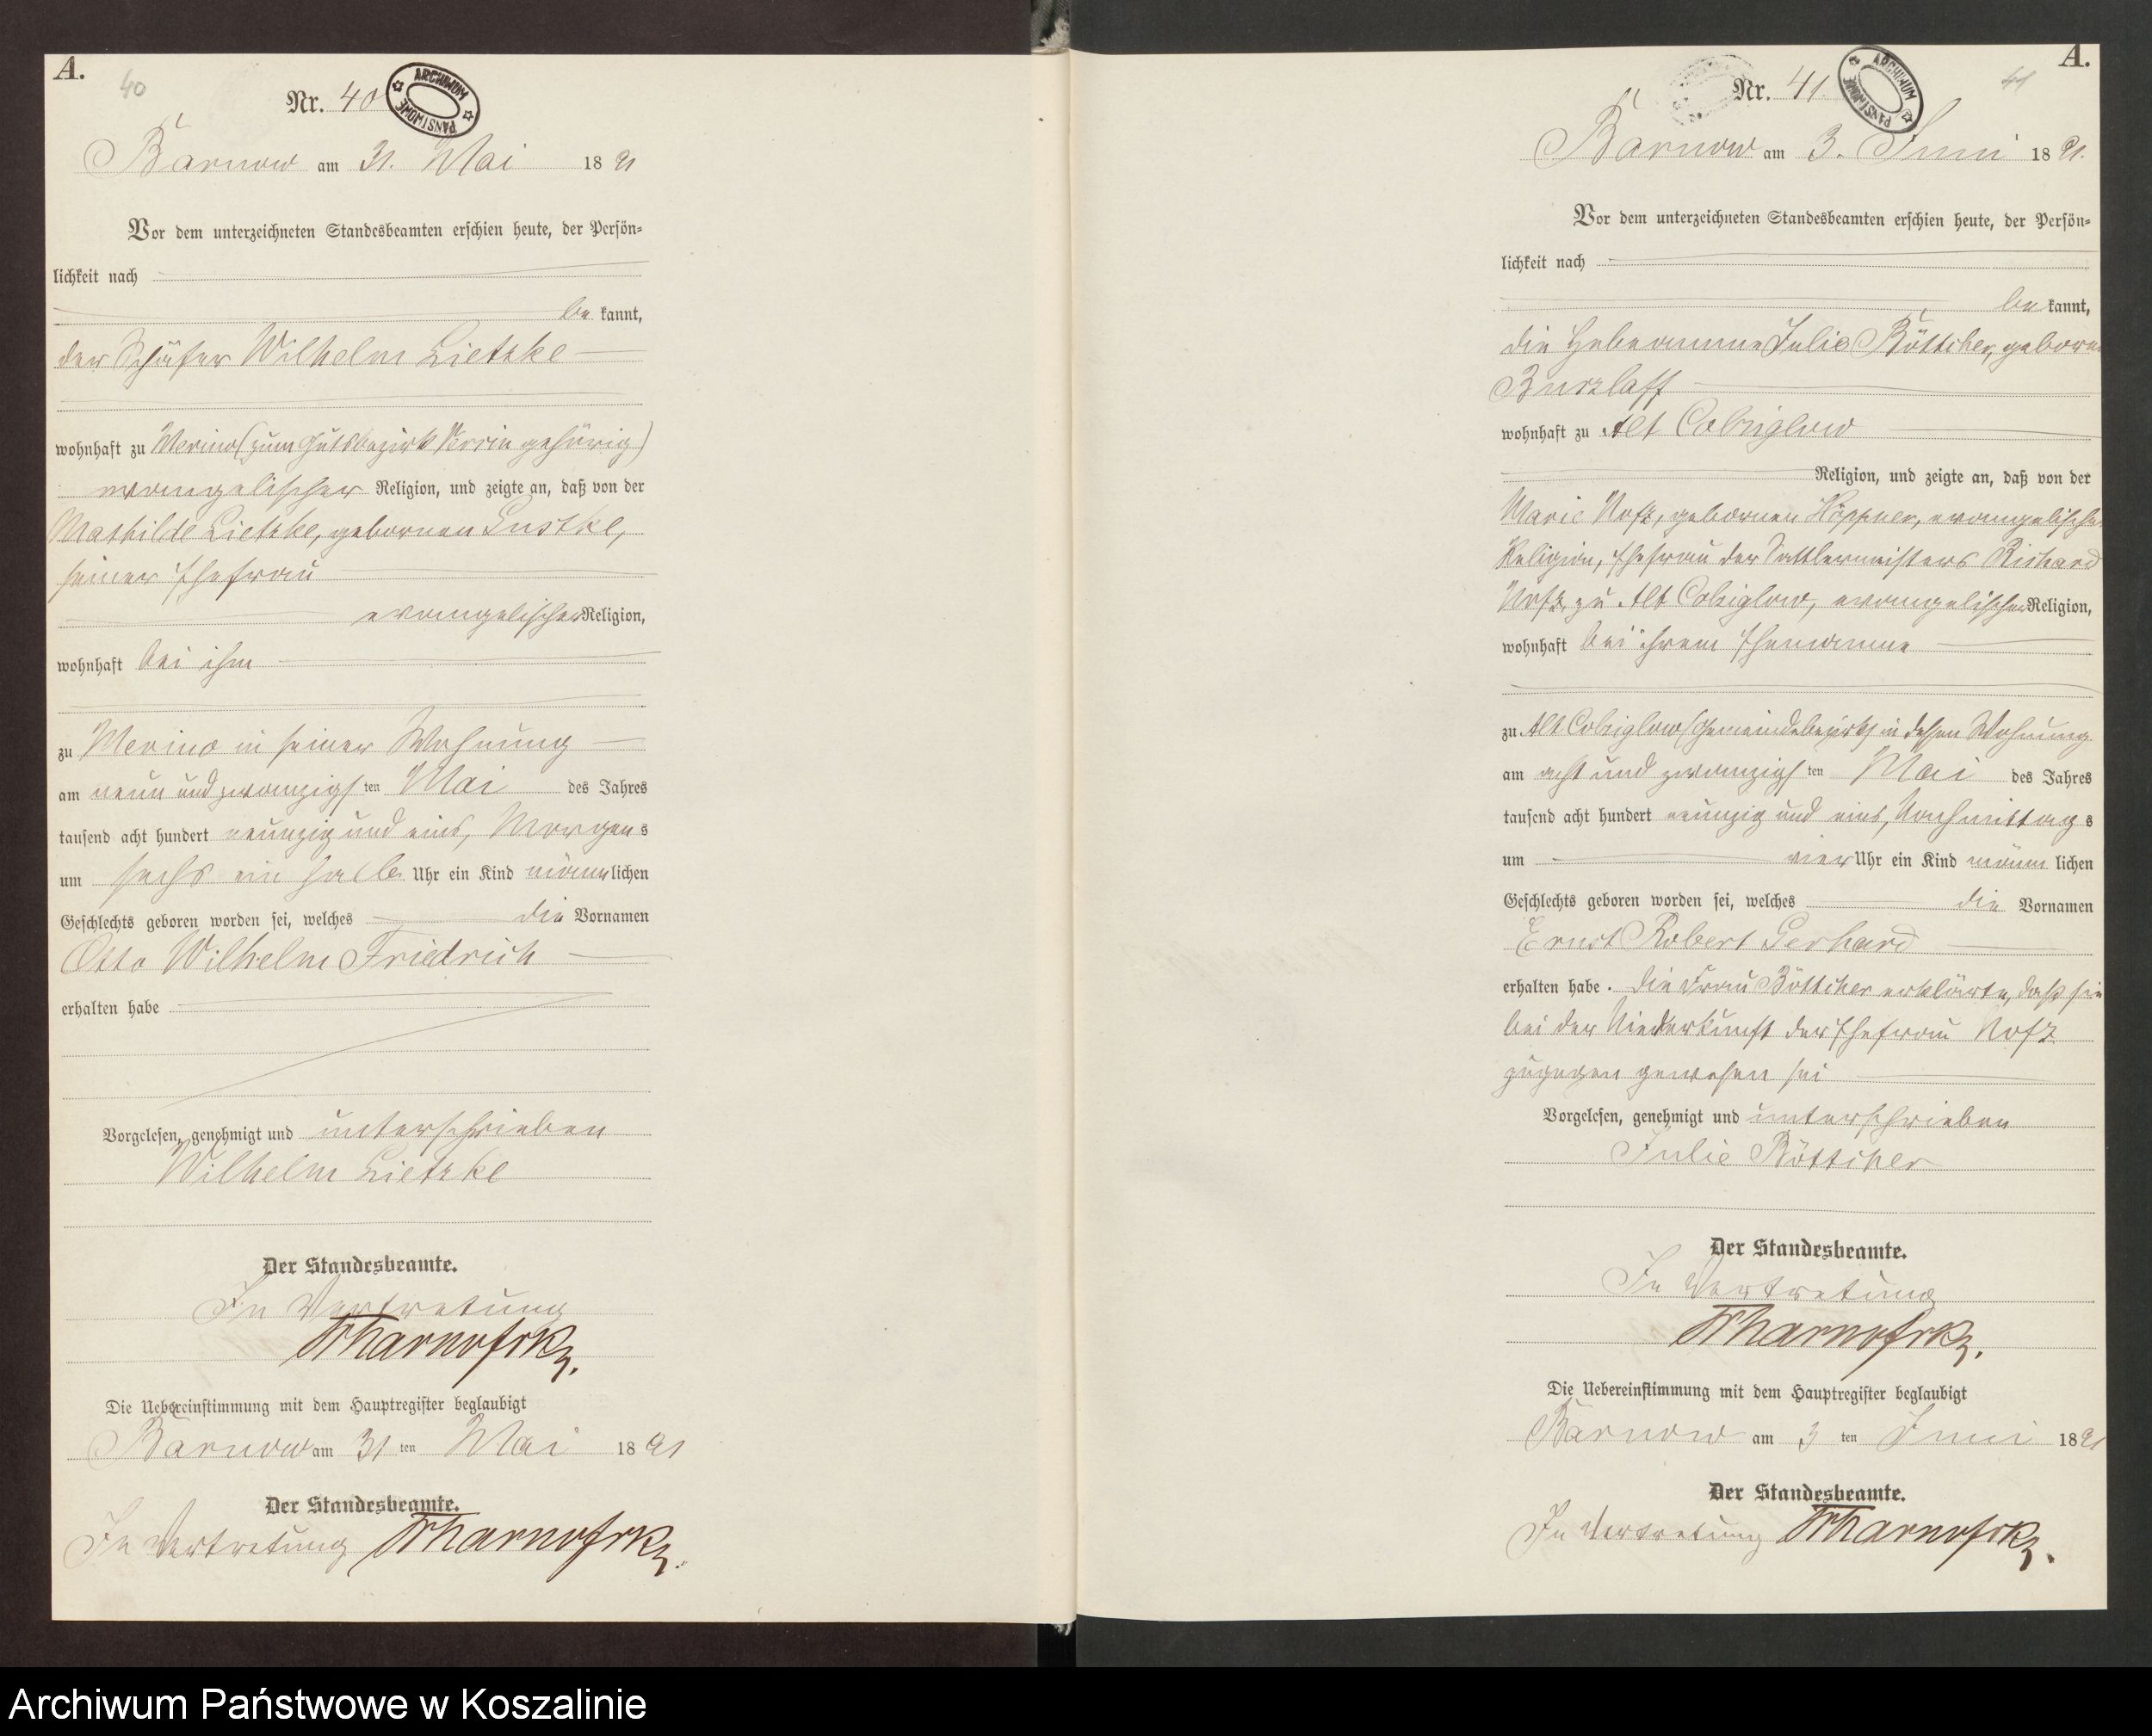 A.
40
Nr. 40
ARCHIWUM PAŃSTWOWE
Barnow am 31. Mai 1891
Vor dem unterzeichneten Standesbeamten erschien heute, der Persön-
lichkeit nach
be kannt,
der Schäfer Wilhelm Lietzke
wohnhaft zu Merino (zum Gutsbezirk Verrin gehörig)
evangelischer Religion, und zeigte an, daß von der
Mathilde Lietzke, gebornen Gustke,
seiner Ehefrau
evangelischer Religion,
wohnhaft bei ihm
zu Merino in seiner Wohnung
am neun und zwanzigs ten Mai des Jahres
tausend acht hundert neunzig und eins, Morgens
um sechs ein halb Uhr ein Kind männlichen
Geschlechts geboren worden sei, welches die Vornamen
Otto Wilhelm Friedrich
erhalten habe
Vorgelesen, genehmigt und unterschrieben
Wilhelm Lietzke
Der Standesbeamte.
In Vertretung
Die Uebereinstimmung mit dem Hauptregister beglaubigt
Barnow am 31 ten Mai 1891
Der Standesbeamte.
In Vertretung
A.
41
Nr. 41.
ARCHIWUM PAŃSTWOWE
Barnow am 3. Juni 1891.
Vor dem unterzeichneten Standesbeamten erschien heute, der Persön-
lichkeit nach
be kannt,
die Hebeamme Julie Böttcher, geborne
Burzlaff
wohnhaft zu Alt Colziglow
Religion, und zeigte an, daß von der
Marie Notz, gebornen Höppner, evangelischer
Religion, Ehefrau des Sattlermeisters Richard
Notz, zu Alt Colziglow, evangelischer Religion,
wohnhaft bei ihrem Ehemanne
zu Alt Colziglow (Gemeindebezirk) in dessen Wohnung
am acht und zwanzigs ten Mai des Jahres
tausend acht hundert neunzig und eins, Nachmittags
um vier Uhr ein Kind männlichen
Geschlechts geboren worden sei, welches die Vornamen
Ernst Robert Gerhard
erhalten habe. Die Frau Böttcher erklärte, daß sie
bei der Niederkunft der Ehefrau Notz
zugegen gewesen sei
Vorgelesen, genehmigt und unterschrieben
Julie Böttcher
Der Standesbeamte.
In Vertretung
Die Uebereinstimmung mit dem Hauptregister beglaubigt
Barnow am 3 ten Juni 1891
Der Standesbeamte.
In Vertretung
Archiwum Państwowe w Koszalinie